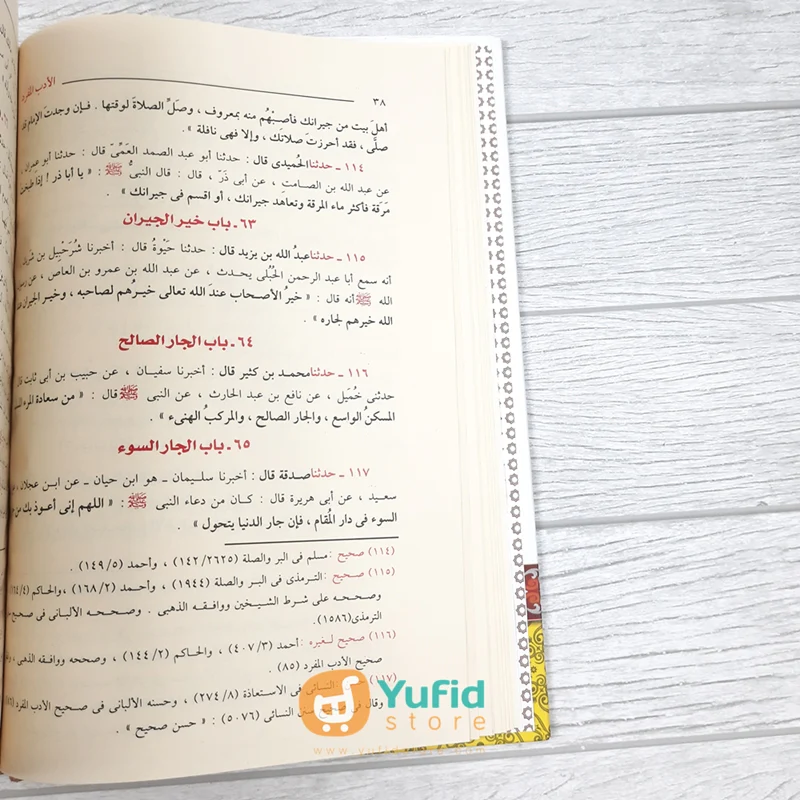 ٣٨
الأدب المفرد
أهلَ بيت من جيرانك فأصِبْهُم منه بمعروف ، وصَلِّ الصلاةَ لوقتها . فـإن وجدتَ الإمام قد
صلَّى ، فقد أحرزتَ صلاتَك ، وإلا فهى نافلة » .
١١٤ ـ حدثنا الحُميدى قال : حدثنا أبو عبد الصمد العَمِّىّ قال : حدثنا أبو عمران ،
عن عبد الله بن الصامت ، عن أبى ذَرّ ، قال : قال النبىُّ ﷺ : « يا أبا ذر ! إذا طبختَ
مَرَقة فأكثر ماء المرقة وتعاهد جيرانك ، أو اقسم فى جيرانك » .
٦٣ ـ باب خير الجيران
١١٥ ـ حدثنا عبدُ الله بن يزيد قال : حدثنا حَيْوةُ قال : أخبرنا شُرَحْبِيل بن شريك
أنه سمع أبا عبد الرحمن الحُبُلى يحدث ، عن عبد الله بن عمرو بن العاص ، عن رسول
الله ﷺ أنه قال : « خيرُ الأصحاب عندَ الله تعالى خيـرُهم لصاحبه ، وخيـر الجيران عند
الله خيرهم لجاره » .
٦٤ ـ باب الجار الصالح
١١٦ ـ حدثنا محمد بن كثير قال : أخبرنا سفيان ، عن حبيب بن أبى ثابت قال
حدثنى خُمَيل ، عن نافع بن عبد الحارث ، عن النبى ﷺ قال : « من سعادة المرء
المسكنُ الواسع ، والجار الصالح ، والمركبُ الهنىء » .
٦٥ ـ باب الجار السوء
١١٧ ـ حدثنا صدقة قال : أخبرنا سليمان ـ هو ابن حيان ـ عن ابـن عجلان ، عن
سعيد ، عن أبى هريرة قال : كان من دعاء النبى ﷺ : « اللهم إنى أعوذ بك من
السوء فى دار المُقام ، فإن جار الدنيا يتحول » .
(١١٤) صحيح : مسلم فى البر والصلة (١٤٢/٢٦٢٥) ، وأحمد (١٤٩/٥) .
(١١٥) صحيح : التـرمذى فى البـر والصلة (١٩٤٤) ، وأحـمد (١٦٨/٢) ،والحاكم
وصـححه على شرط الشـيخين ووافقـه الذهبى . وصـححـه الألبانى فى صحيح
الترمذى (١٥٨٦).
(١١٦) صحيح لـغيره : أحمد (٤٠٧/٣) ، والحاكم (١٤٤/٢) ، وصححه ووافقه الذهبى ،
صحيح الأدب المفرد (٨٥) .
(١١٧) النسائى فى الاستعاذة (٢٧٤/٨) ، وحسنه الألبانى فى صحيح الأدب المفرد
وقال فى سنن النسائى (٥٠٧٦) : « حسن صحيح » .
Yufid
store